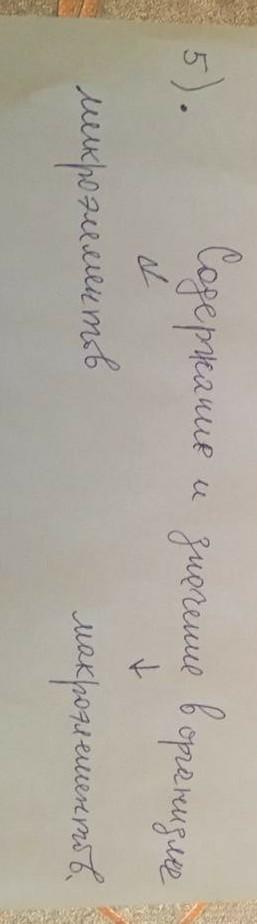 5). Содержание и значение в организме
↙ ↓
микроэлементов макроэлементов.